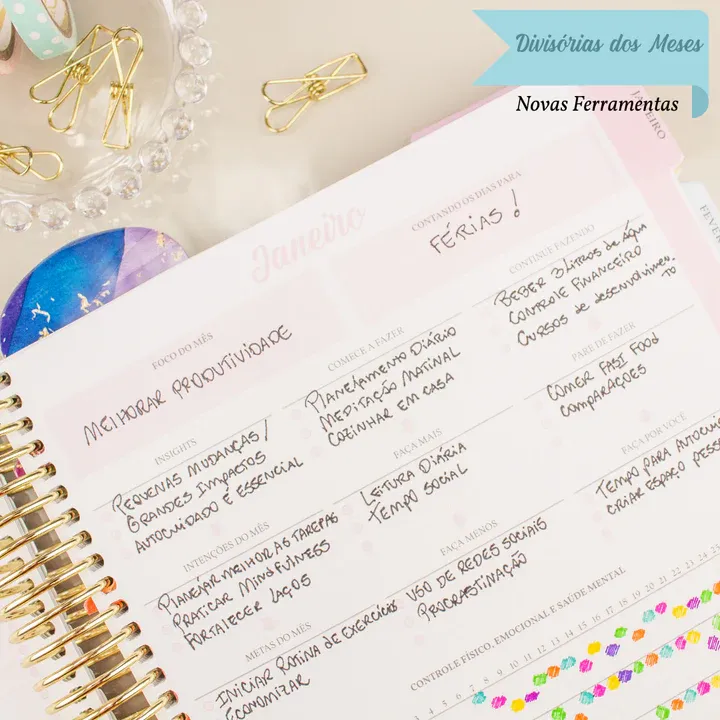 Divisórias dos Meses
Novas Ferramentas
JANEIRO
Janeiro
CONTANDO OS DIAS PARA
FÉRIAS!
FOCO DO MÊS
MELHORAR PRODUTIVIDADE
COMECE A FAZER
PLANEJAMENTO DIÁRIO
MEDITAÇÃO MATINAL
COZINHAR EM CASA
CONTINUE FAZENDO
BEBER 3 LITROS DE ÁGUA
CONTROLE FINANCEIRO
CURSOS DE DESENVOLVIMEN.
TO
INSIGHTS
PEQUENAS MUDANÇAS /
GRANDES IMPACTOS
AUTOCUIDADO É ESSENCIAL
FAÇA MAIS
LEITURA DIÁRIA
TEMPO SOCIAL
PARE DE FAZER
COMER FAST FOOD
COMPARAÇÕES
INTENÇÕES DO MÊS
PLANEJAR MELHOR AS TAREFAS
PRATICAR MINDFULNESS
FORTALECER LAÇOS
FAÇA MENOS
USO DE REDES SOCIAIS
PROCRASTINAÇÃO
FAÇA POR VOCÊ
TEMPO PARA
CRIAR ESPAÇO
METAS DO MÊS
INICIAR ROTINA DE EXERCÍCIOS
ECONOMIZAR
CONTROLE FÍSICO, EMOCIONAL E SAÚDE MENTAL
4 5 6 7 8 9 10 11 12 13 14 15 16 17 18 19 20 21 22 23 24